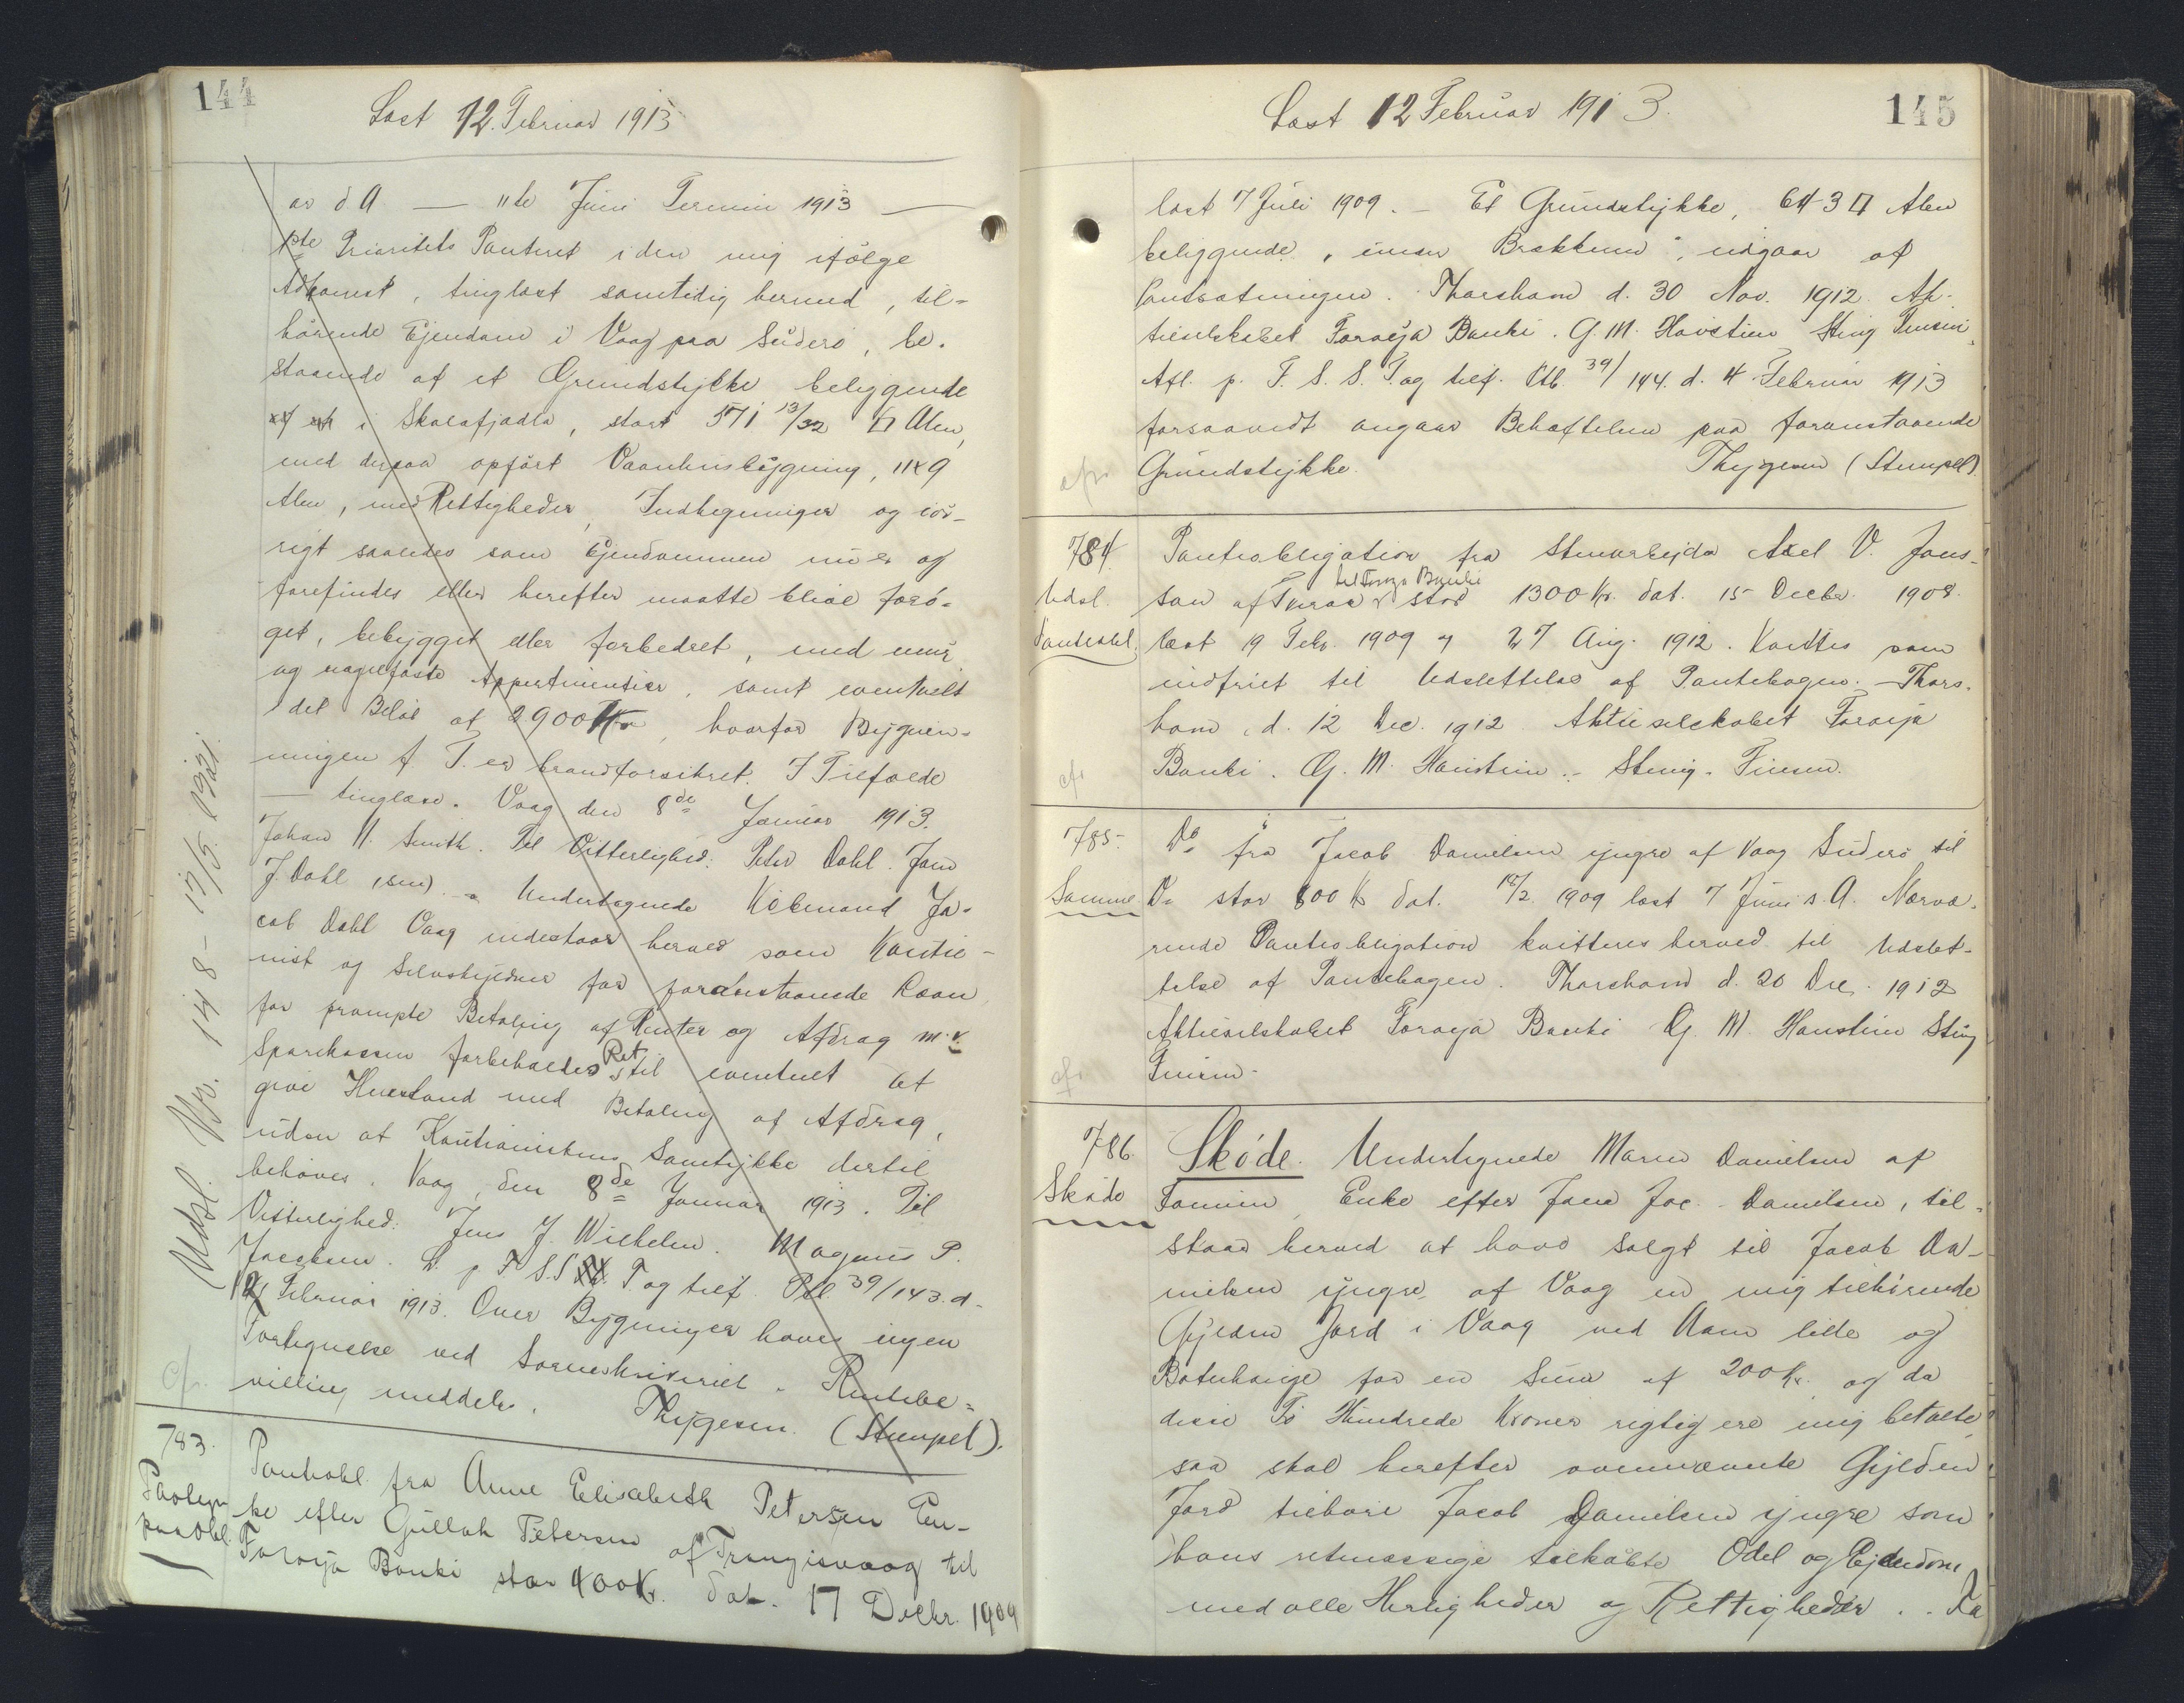 144
Læst 12. Februar 1913
as d. A. — 11te Juni Termin 1913 —
1ste Prioritets Panteret i den mig ifølge
Adkomst, tinglæst samtidig hermed, til-
hørende Ejendom i Vaag paa Suderø, be-
staaende af et Grundstykke beliggende
i Skalafjadla, stort 571 13/32 □ Alen,
med derpaa opført Vaanhusbygning, 11x9
Alen, med Rettigheder, Indhegninger og iøv-
rigt saaledes som Ejendommen nu er og
forefindes eller herefter maatte blive forø-
get, bebygget eller forbedret, med mur
og nagelfaste Appertinentier, samt eventuelt
det Beløb af 2900 Kr, hvorfor Bygnin-
ningen f. T. er brandforsikret. I Tilfælde
— tinglæse. Vaag den 8de Januar 1913.
Johan N. Smith. Til Vitterlighed: Peter Dahl. Joen
J. Dahl (sen). - Undertegnede Købmand Ja-
cob Dahl Vaag indestaar herved som Kautio-
nist og Selvskyldner for foranstaaende Laan
for prompte Betaling af Renter og Afdrag m.v.
Sparekassen forbeholdes Ret til eventuelt at
give Henstand med Betaling af Afdrag,
uden at Kautionistens Samtykke dertil
behøves. Vaag, den 8de Januar 1913. Til
Vitterlighed: Jens J. Wilhelm. Magnus P.
Jacobsen. L. p. F. S. S. T. og tilf. Ptb. 39/143. d.
12 Februar 1913. Over Bygninger haves ingen
Fortegnelse ved Sorenskriveriet. Rentebe-
villing meddeles. Thygesen. (Stempel).
cfr.
Udsl. Nr. 148 - 13/5. 1921.
783.
Paategn
paa Obl.
Panteobl. fra Anne Elisabeth Petersen En-
ke efter Gullak Petersen af Trangisvaag til
Foroya Banki stor 400 Kr. dat. 17 Decbr. 1909
145
Læst 12 Februar 1913.
læst 7 Juli 1909. — Et Grundstykke, 643 □ Alen
beliggende "innan Brekkuna", udgaar af
Pantsætningen. Thorshavn d. 30 Nov. 1912. Ak-
tieselskabet Foroya Banki. G. M. Havstien Sting Finsen
Afl. p. F. S. S. T. og tilf. Ptb. 39/144. d. 4 Februar 1913
forsaavidt angaar Behæftelsen paa foranstaaende
Grundstykke. Thygesen (Stempel)
cfr.
784.
Udsl.
Panteobl.
Panteobligation fra Stenarbejder Axel V. Jons-
son af Tveraa til Foroya Banki stor 1300 Kr. dat. 15 Decbr. 1908.
læst 19 Febr. 1909 og 27 Aug. 1912. Kvitteres som
indfriet til Udslettelse af Pantebogen. — Thors-
havn, d. 12 Dec. 1912 Aktieselskabet Foroya
Banki. G. M. Havstien - Sting. Finsen.
cfr.
785.
Samme
Do fra Jacob Danielsen yngre af Vaag Suderø til
Do stor 800 Kr dat. 18/2. 1909 læst 7 Juni s. A. Nærvæ-
rende Panteobligation kvitteres herved til Udslet-
telse af Pantebogen. Thorshavn d. 20 Dec. 1912
Aktieselskabet Foroya Banki G. M. Havstien Sting
Finsen.
cfr.
786.
Skøde
Skøde. Undertegnede Maren Danielsen af
Famien, Enke efter Joen Jac. Danielsen, til-
staar herved at have solgt til Jacob Da-
nielsen yngre, af Vaag en mig tilhørende
Gylden Jord i Vaag ved Aam lille og
Botuhauge for en Sum af 200 Kr, og da
disse To Hundrede Kroner rigtig ere mig betalte,
saa skal herefter ovennævnte Gylden
Jord tilhøre Jacob Danielsen yngre som
hans retmæssige tilkøbte Odel og Ejendom
med alle Herligheder og Rettigheder. - Da